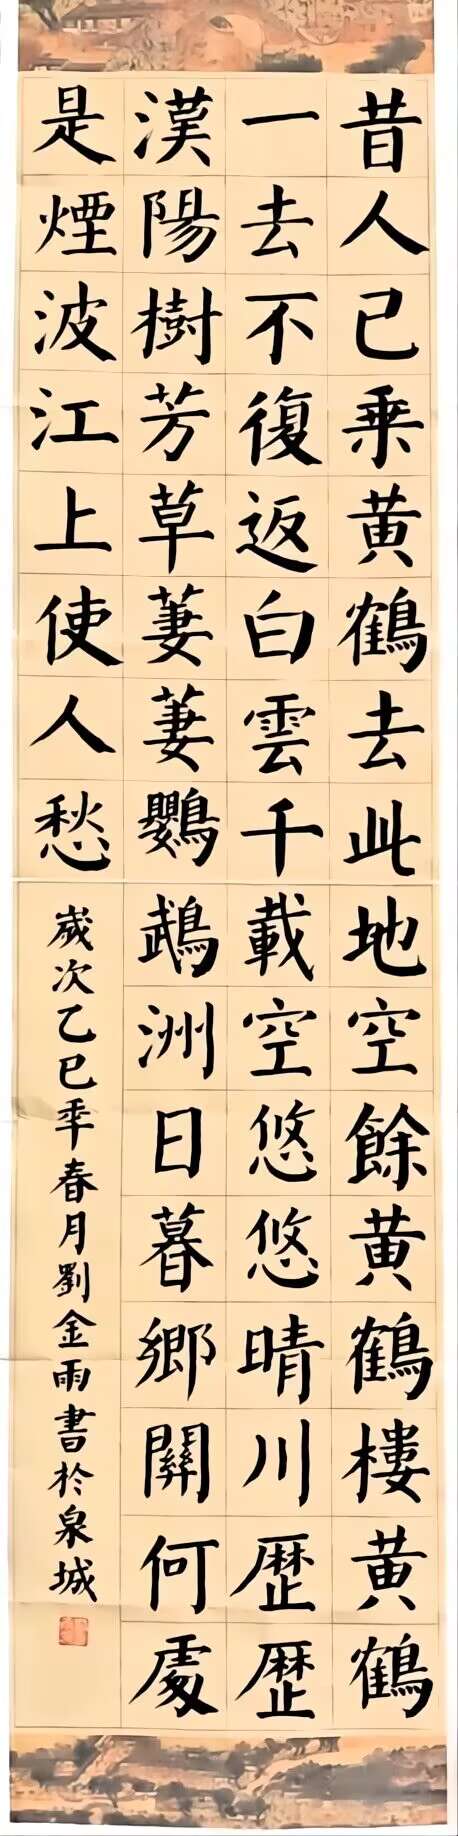 昔人已乘黄鶴去此地空餘黄鶴樓黄鶴
一去不復返白雲千載空悠悠晴川歴歴
漢陽樹芳草萋萋鸚鵡洲日暮鄉關何處
是煙波江上使人愁
歲次乙巳年春月劉金雨書於泉城